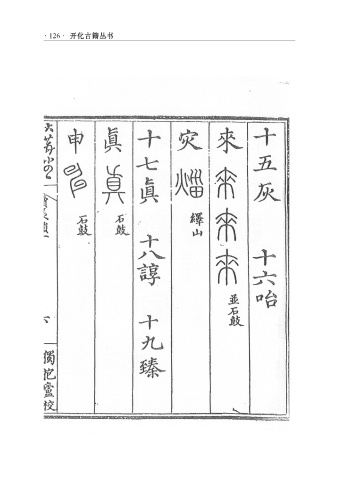 · 126 · 开化古籍丛书
十五灰 十六咍
來 並石鼓
灾 繹山
十七眞 十八諄 十九臻
眞 石鼓
申 石鼓
六 獨抱廬校